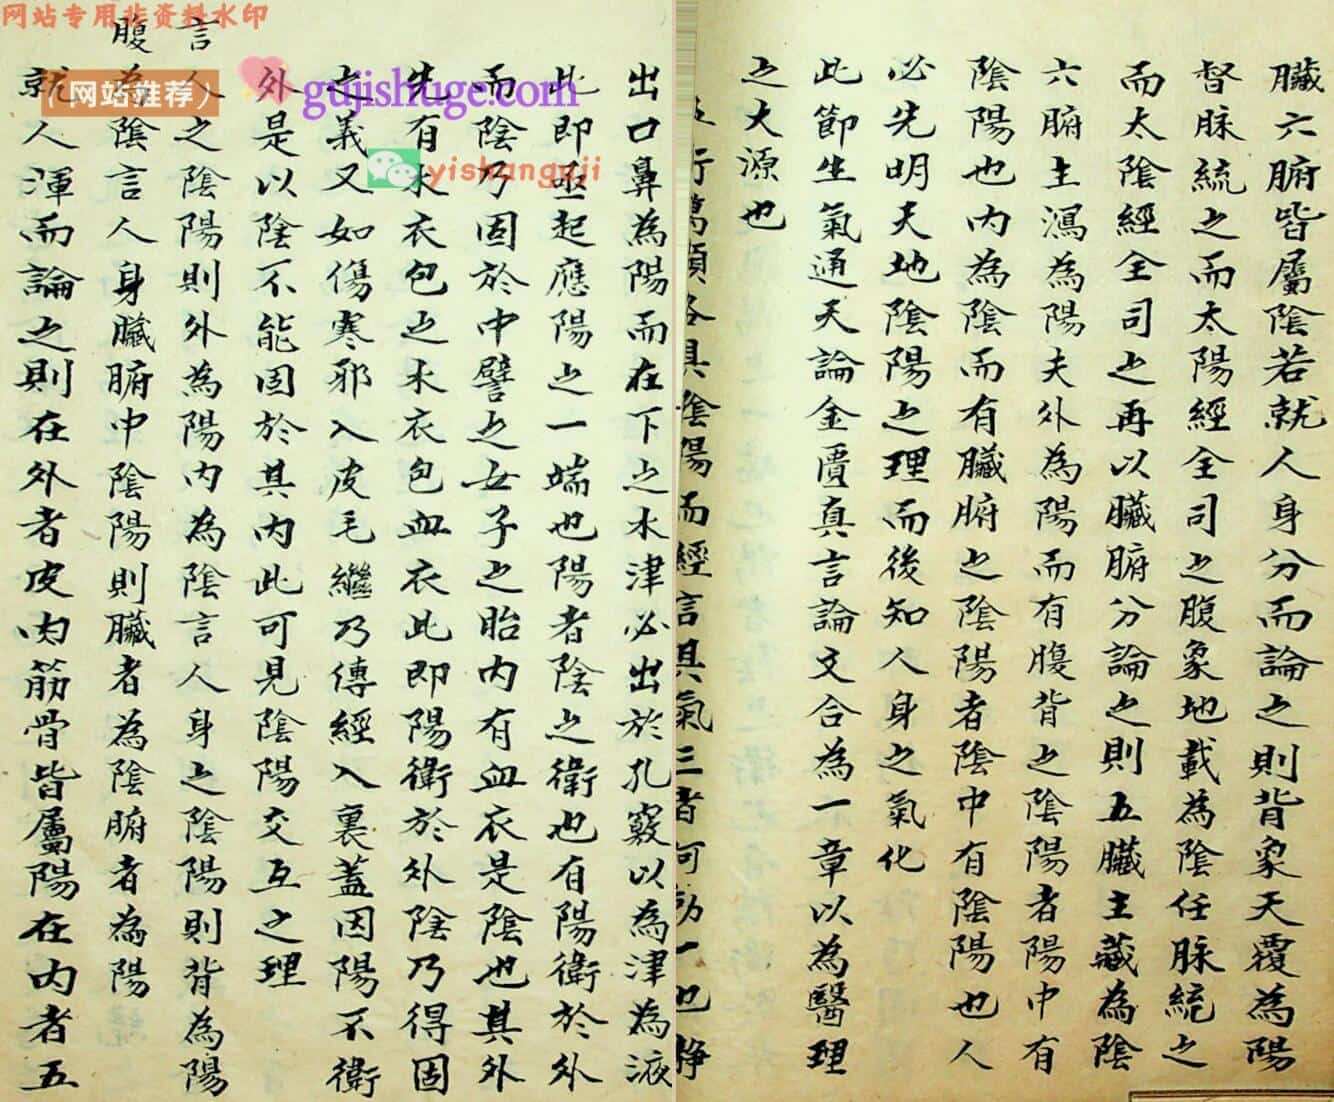 网站专用非资料水印
(网站推荐)
gujishuge.com
yishanguji
出口鼻為陽而在下之水津必出於孔竅以為津為液
此即亟起應陽之一端也陽者陰之衛也有陽衛於外
而陰乃固於中譬之女子之胎内有血衣是陰也其外
先有水衣包之水衣包血衣此即陽衛於外陰乃得固
之義又如傷寒邪入皮毛繼乃傳經入裏蓋因陽不衛
外是以陰不能固於其内此可見陰陽交互之理
言人之陰陽則外為陽内為陰言人身之陰陽則背為陽
腹為陰言人身臟腑中陰陽則臟者為陰腑者為陽
就人渾而論之則在外者皮肉筋骨皆屬陽在内者五
臟六腑皆屬陰若就人身分而論之則背象天覆為陽
督脉統之而太陽經全司之腹象地載為陰任脉統之
而太陰經全司之再以臟腑分論之則五臟主藏為陰
六腑主瀉為陽夫外為陽而有腹背之陰陽者陽中有
陰陽也内為陰而有臟腑之陰陽者陰中有陰陽也人
必先明天地陰陽之理而後知人身之氣化
此節生氣通天論金匱真言論文合為一章以為醫理
之大源也
行萬類各具陰陽而經言其氣三者何一也靜